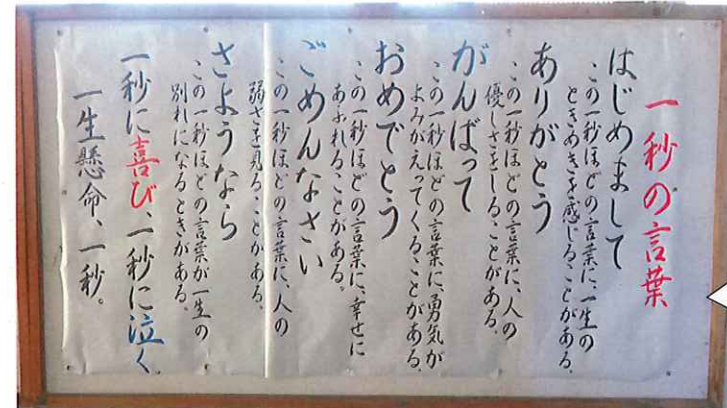 一秒の言葉
はじめまして
この一秒ほどの言葉に、一生の
ときめきを感じることがある。
ありがとう
この一秒ほどの言葉に、人の
優しさをしることがある。
がんばって
この一秒ほどの言葉に、勇気が
よみがえってくることがある。
おめでとう
この一秒ほどの言葉に、幸せに
あふれることがある。
ごめんなさい
この一秒ほどの言葉に、人の
弱さを見ることがある。
さようなら
この一秒ほどの言葉が一生の
別れになるときがある。
一秒に喜び、一秒に泣く
一生懸命、一秒。